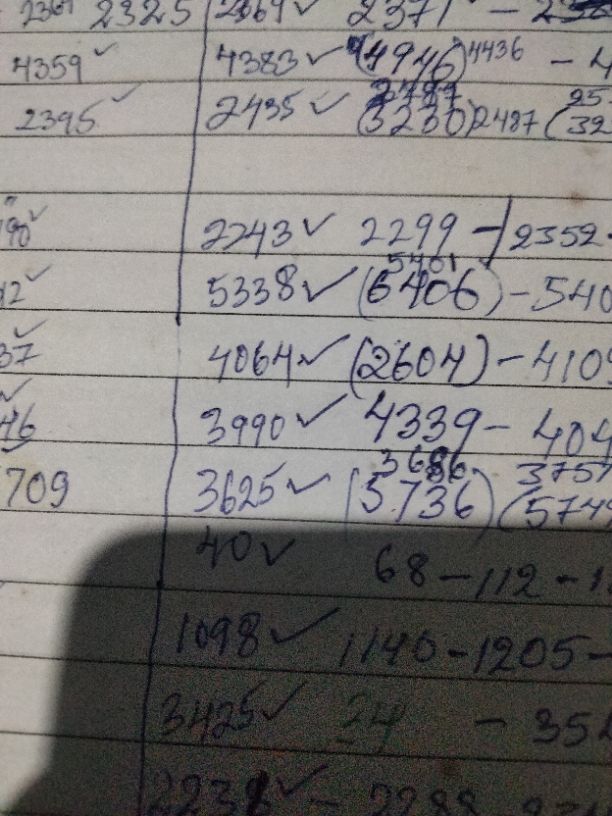 2325 2369 ✓ 2371 -
4359 ✓ 4383 ✓ (4946) 4436 - 4
2395 ✓ 2435 ✓ 2487 (3230) 2487 (
90 ✓ 2243 ✓ 2299 - 2352
12 ✓ 5338 ✓ 5401 (6406) - 540
37 ✓ 4064 ✓ (2604) - 4109
46 ✓ 3990 ✓ 4339 - 404
3686 3757
709 3625 ✓ (5736) (5749
40 ✓ 68 - 112 - 1
1098 ✓ 1140 - 1205 -
3425 ✓ 24 - 354
✓ - 2288